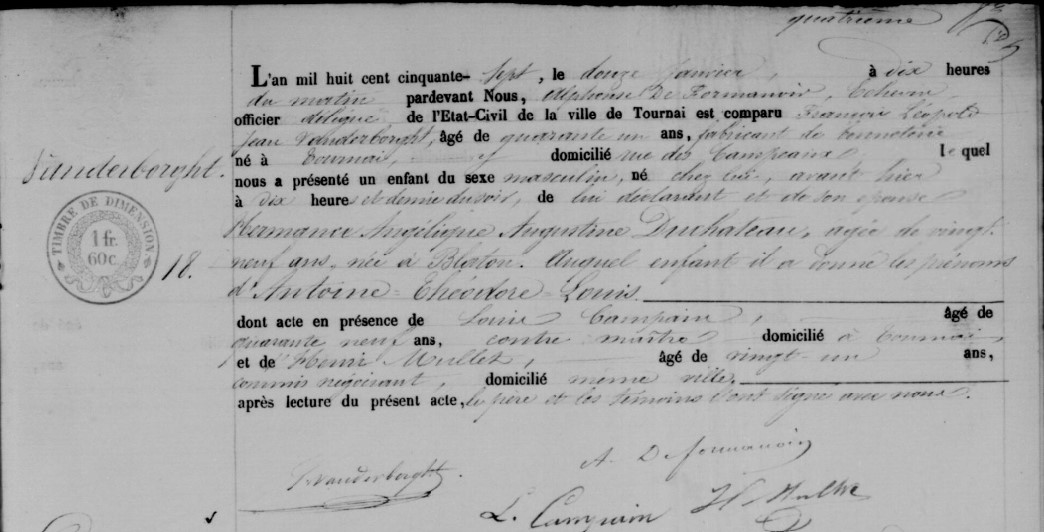 quatrième
L'an mil huit cent cinquante-sept, le douze Janvier, à dix heures
du matin pardevant Nous, Alphonse De Formanoir, Echevin
officier délégué de l'Etat-Civil de la ville de Tournai est comparu François Léopold
Jean Vanderborght, âgé de quarante un ans, fabricant de bonneterie
né à Tournai, et domicilié rue des Campeaux, lequel
Vanderborght.
nous a présenté un enfant du sexe masculin, né chez lui, avant hier
à dix heures et demie du soir, de lui déclarant et de son épouse
TIMBRE DE DIMENSION
1 fr.
60 c.
Hermance Angélique Augustine Duchateau, agée de vingt
18.
neuf ans, née à Blaton. Auquel enfant il a donné les prénoms
d'Antoine=Théodore=Louis.
dont acte en présence de Louis Campain, âgé de
quarante neuf ans, contre maître domicilié à Tournai,
et de Henri Mullet, âgé de vingt-un ans,
commis négociant, domicilié même ville.
après lecture du présent acte, le père et les témoins ont signé avec nous.
A. De formanoir
Jvanderborght.
L. Campain